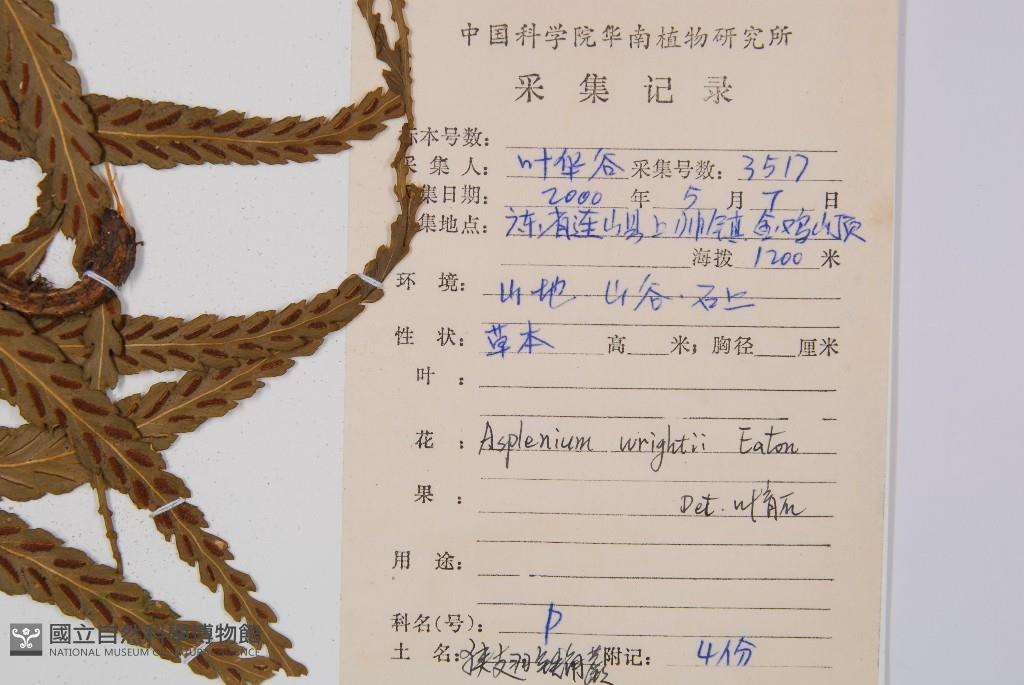 中国科学院华南植物研究所
采集记录
标本号数:
采集人: 叶华谷 采集号数: 3517
采集日期: 2000 年 5 月 7 日
采集地点: 广东省连山县上帅镇金鸡山顶
海拨 1200 米
环境: 山地 山谷·石上
性状: 草本 高 米; 胸径 厘米
叶:
花: Asplenium wrightii Eaton
果: Det. 叶育石
用途:
科名(号): P
土名: 狭翅铁角蕨 附记: 4份
國立自然科學博物館
NATIONAL MUSEUM OF NATURAL SCIENCE